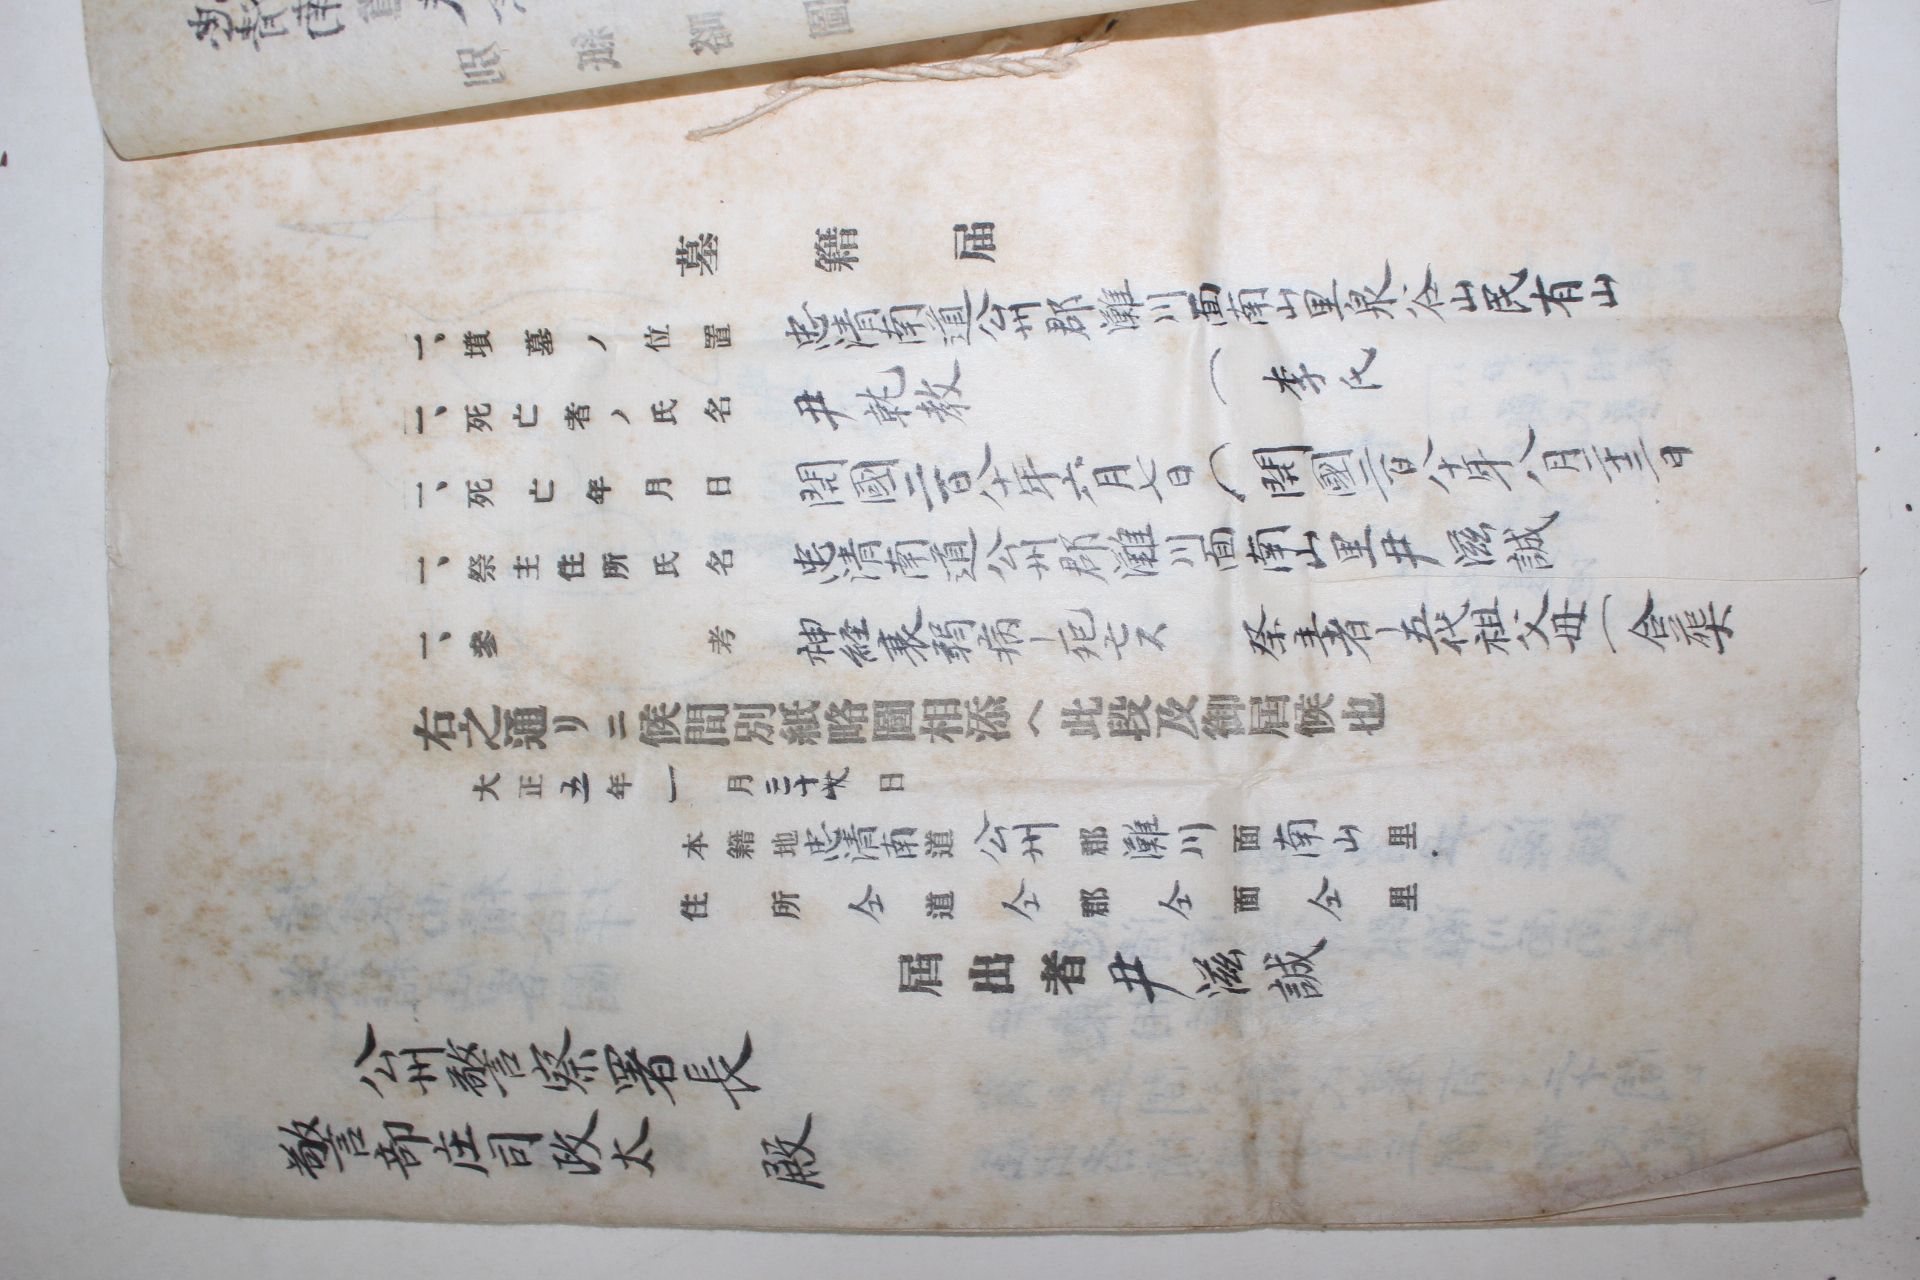 墓籍届
一、墳墓ノ位置 忠清南道公州郡灘川面南山里泉谷山民有山
一、死亡者ノ氏名 尹乾教 (李氏
一、死亡年月日 開國二百八十年六月七日 (開國二百八十年八月二十三日
一、祭主住所氏名 忠清南道公州郡灘川面南山里尹滋誠
一、參考 神経衰弱病ニ死セス 祭主者ノ五代祖父母(合葬
右之通リニ候間別紙略圖相添ヘ此段及御届候也
大正五年一月三十 日
本籍地忠清南道公州郡灘川面南山里
住所仝道仝郡仝面仝里
届出者尹滋誠
公州警察署長
警部庄司政太 殿